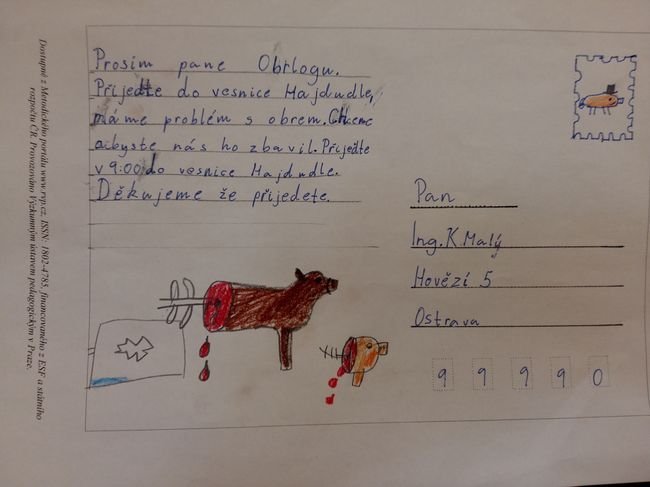 Prosím pane Obrlogu.
Přijeďte do vesnice Hajdudle,
máme problém s obrem. Chceme
abyste nás ho zbavil. Přijeďte
v 9:00 do vesnice Hajdudle.
Děkujeme že přijedete.
Pan
Ing. K. Malý
Hovězí 5
Ostrava
9 9 9 9 0
Dostupné z Metodického portálu www.rvp.cz, ISSN: 1802-4785, financovaného z ESF a státního
rozpočtu ČR. Provozováno Výzkumným ústavem pedagogickým v Praze.